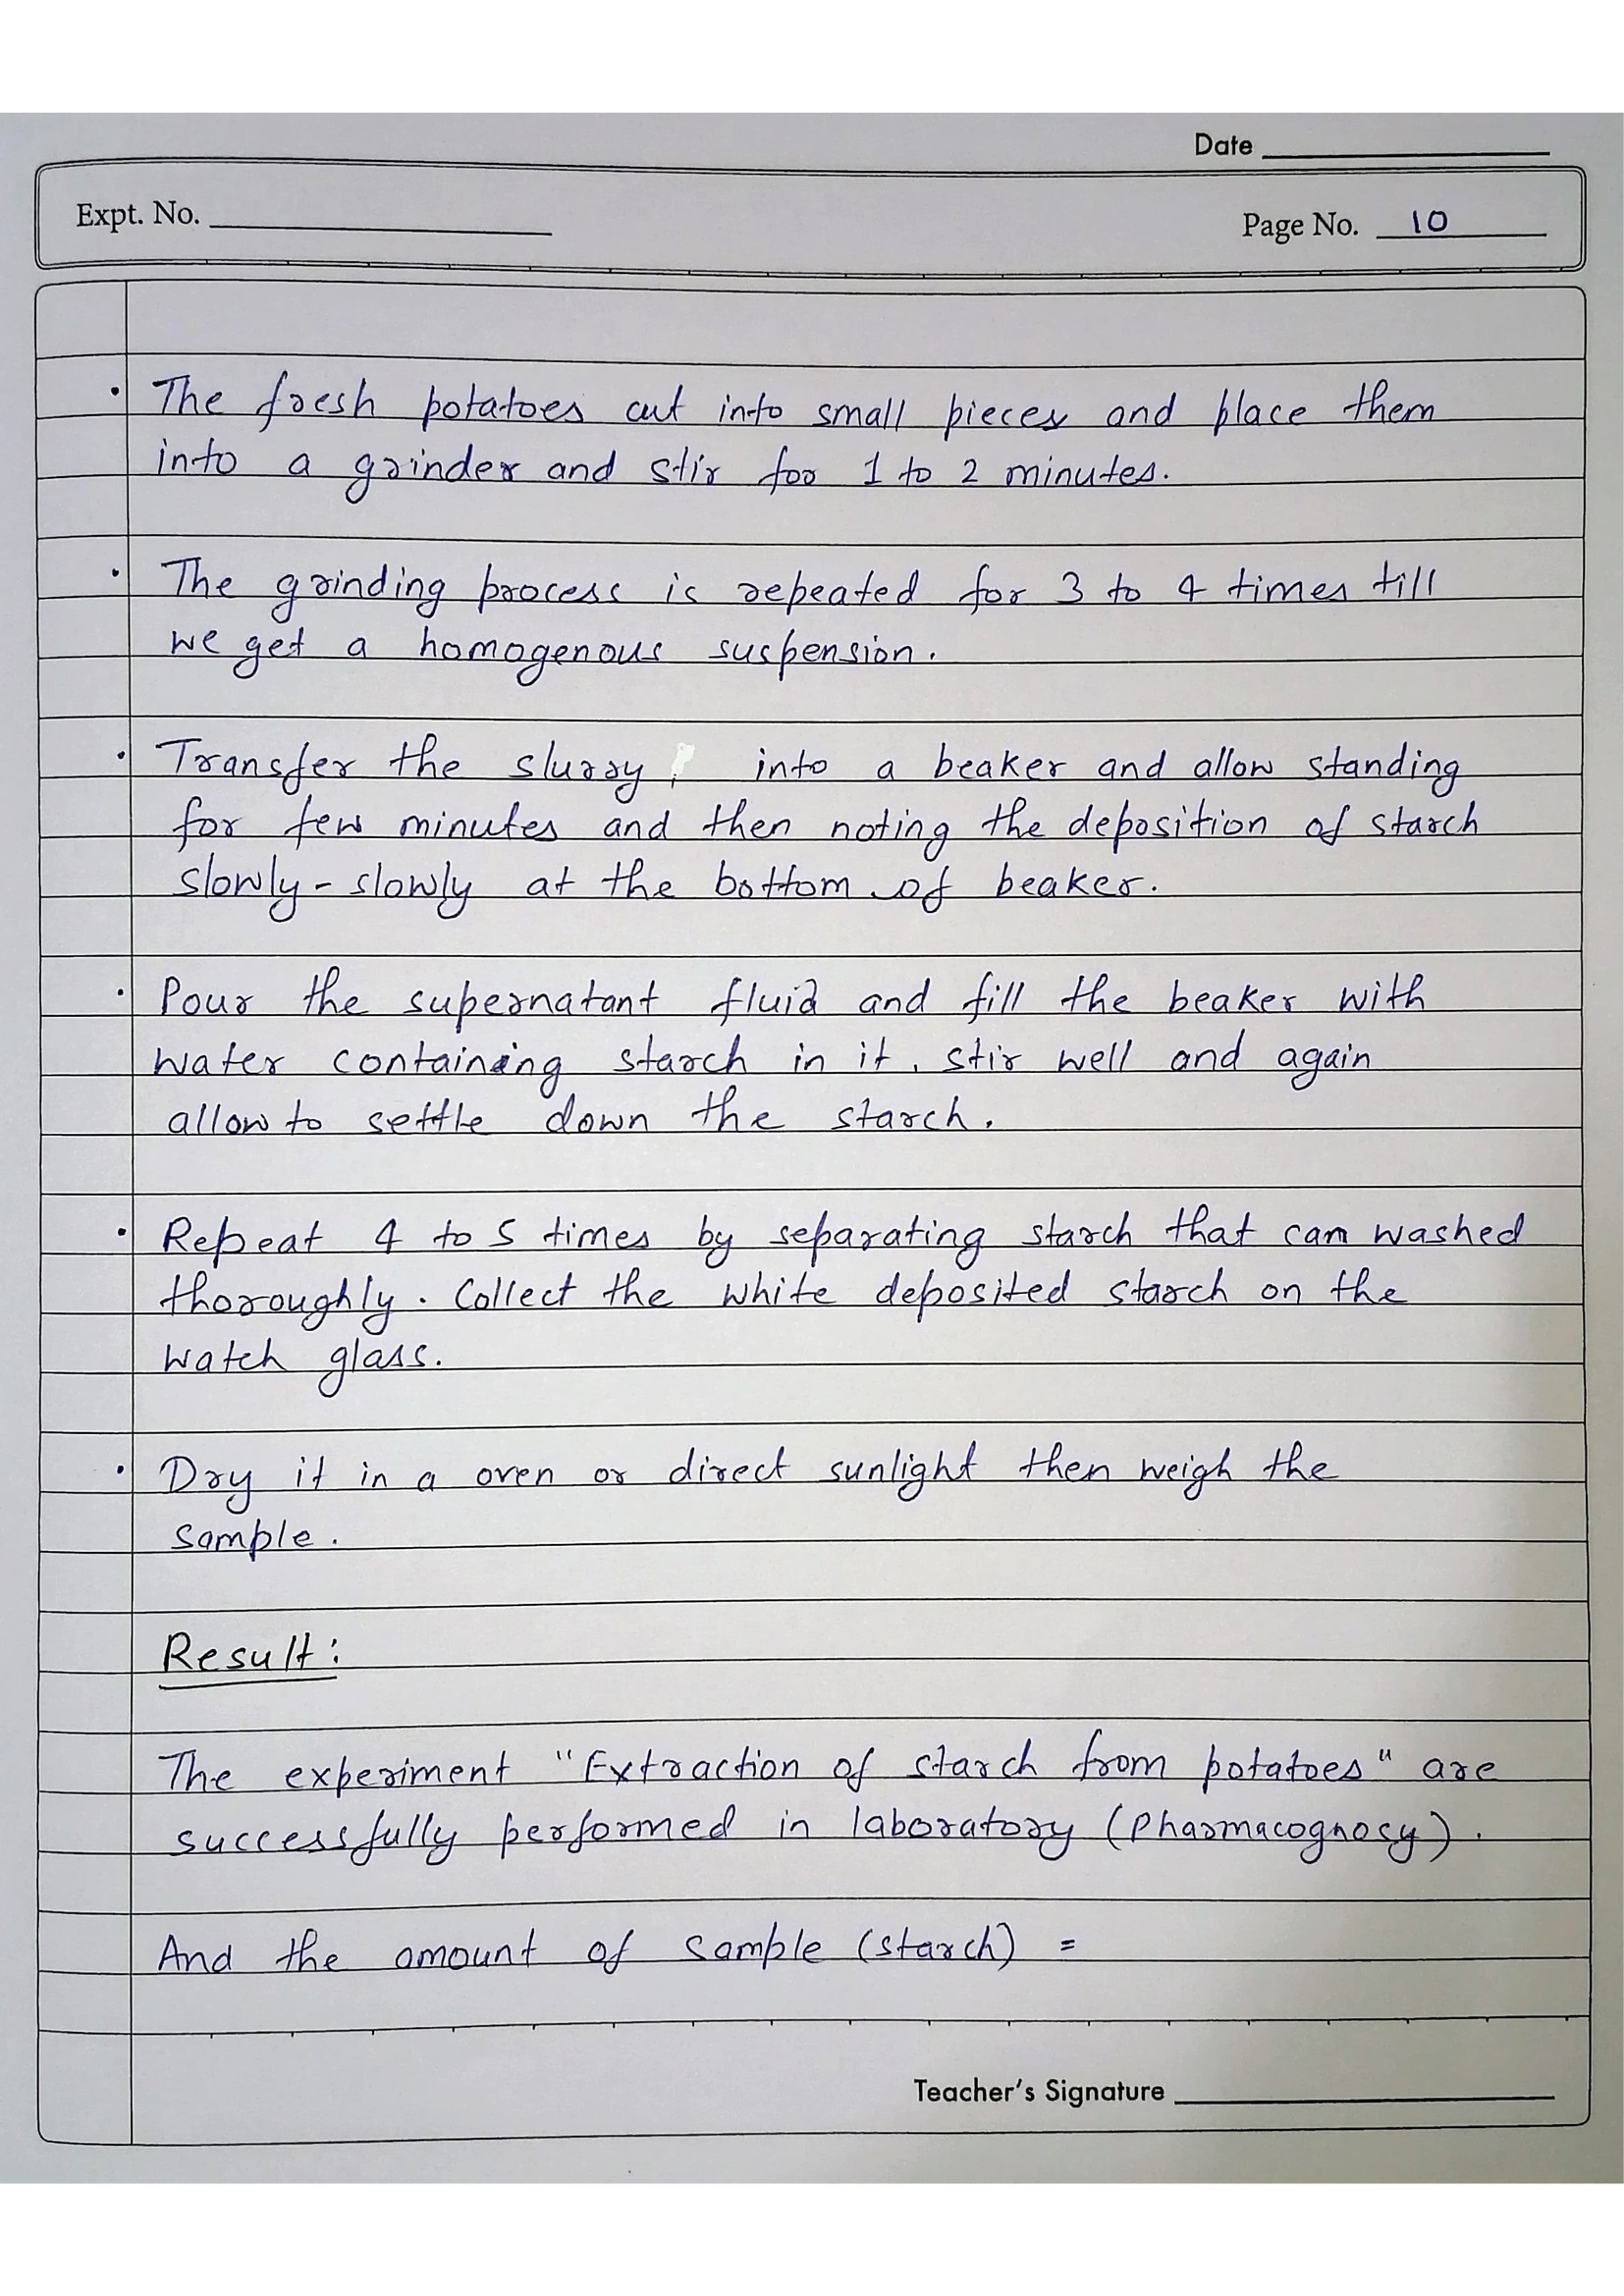 Date
Expt. No.
Page No. 10
• The fresh potatoes cut into small pieces and place them
into a grinder and stir for 1 to 2 minutes.
• The grinding process is repeated for 3 to 4 times till
we get a homogenous suspension.
• Transfer the slurry into a beaker and allow standing
for few minutes and then noting the deposition of starch
slowly-slowly at the bottom of beaker.
• Pour the supernatant fluid and fill the beaker with
water containing starch in it, stir well and again
allow to settle down the starch.
• Repeat 4 to 5 times by separating starch that can washed
thoroughly. Collect the white deposited starch on the
watch glass.
• Dry it in a oven or direct sunlight then weigh the
sample.
Result:
The experiment "Extraction of starch from potatoes" are
successfully performed in laboratory (Pharmacognosy).
And the amount of sample (starch) =
Teacher's Signature